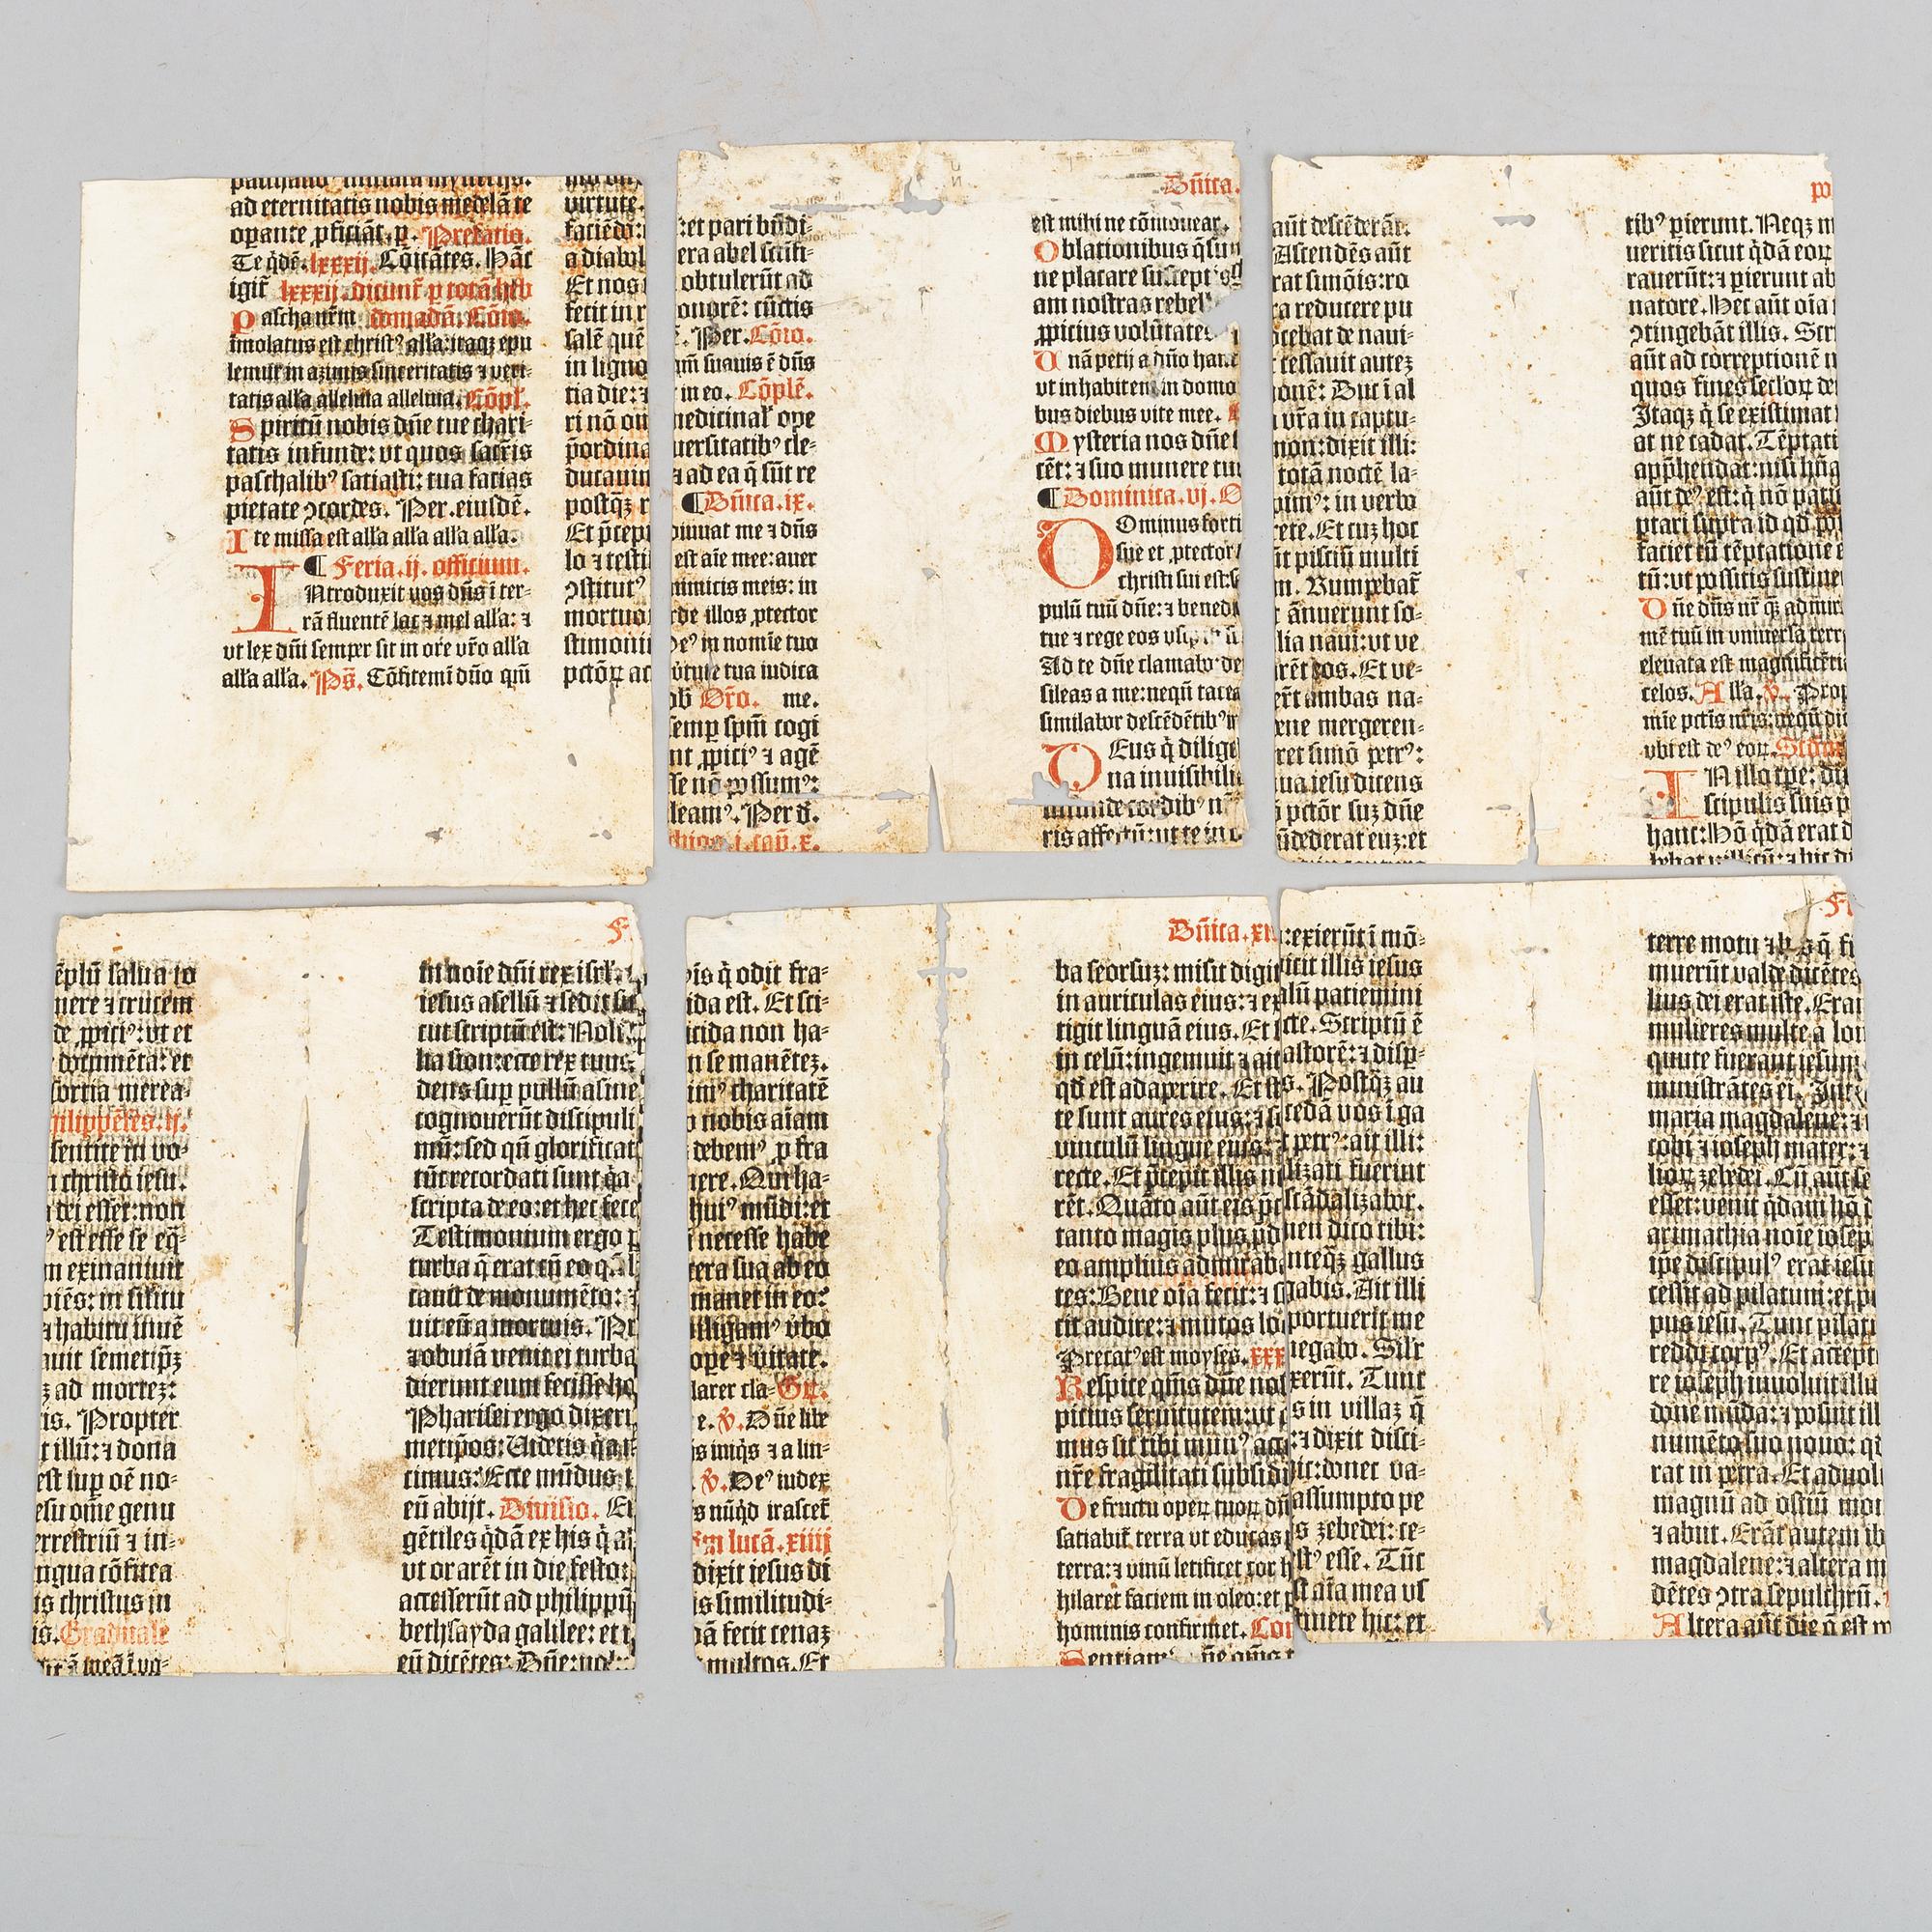 ad eternitatis nobis medelā te
opante ꝓficiāt. p. Prefatio.
Te q̇dē. lxxxij. Cōicātes. Hāc
igit̄ lxxxij. dicunt̄ p totā heb
Pascha nr̄m domadā. Cōio.
īmolatus est christꝰ alla: itaqꝫ epu
lemur in azimis sinceritatis ⁊ veri-
tatis alla alleluia alleluia. Cōpl.
Spiritū nobis dn̄e tue chari-
tatis infunde: ut quos sacr̄is
paschalibꝰ satiasti: tua facias
pietate ↄcordes. Per. eiusdē.
Ite missa est alla alla alla alla.
¶ Feria. ij. officium.
INtroduxit vos dn̄s i ter-
rā fluentē lac ⁊ mel alla: ⁊
vt lex dn̄i semper sit in ore vr̄o alla
alla alla. Ps̄. Cōfitemī dn̄o qm̄
virtute.
faciēdo:
a diabol
Et nos
fecit in r
salē quē
in ligno
tia die: ⁊
ri nō om
p̄ordina
ducauim
postqꝫ r
Et p̄cepi
lo ⁊ testi
ↄstitutꝰ
mortuo
stimoni
pctōꝝ ac
:et pari bn̄di-
era abel sc̄ifi-
obtulerūt ad
onorē: cūctis
. Per. Cōio.
qm̄ suauis ē dn̄s
in eo. Cōplē.
medicinal ope
uersitatibꝰ cle-
⁊ ad ea q̄ sūt re
¶ Dn̄ica. ix.
minat me ⁊ dn̄s
est aīe mee: auer
nimicis meis: in
rde illos ꝓtector
Deꝰ in nomīe tuo
v̄tute tua iudica
ob Or̄o. me.
semp spm̄ cogi
nt ꝓpiciꝰ ⁊ agē
sse nō possumꝰ:
leamꝰ. Per d̄.
. j. cap̄. x.
Dn̄ica.
est mihi ne cōmouear.
Oblationibus qs̄um
ne placare suscept
am nostras rebel
ꝓpicius volūtates
Unā petij a dn̄o hanc
vt inhabitem in domo
bus diebus vite mee.
Mysteria nos dn̄e
cēt: ⁊ suo munere tu
¶ Dominica. vj. O
DOminus forti
sue et ꝓtector
christi sui est: s
pulū tuū dn̄e: ⁊ bened
tue ⁊ rege eos vsqꝫ in s
Ad te dn̄e clamabo de
sileas a me: neqn̄ tacea
similabor descēdētibꝰ in
DEus q̄ dilige
na inuisibili
infunde cordibꝰ n
ris affectū: ut te in o
po
aūt descēderāt.
Ascendēs aūt
rat simōis: ro
a reducere pu
ocebat de naui-
cessauit autez
onē: Duc i al
vr̄a in captu-
mon: dixit illi:
totā noctē la-
pimꝰ: in verbo
rete. Et cuz hoc
t pisciū multi
m. Rumpebat̄
t ānuerunt so-
lia naui: vt ve
rēt eos. Et ve-
er̄t ambas na-
ene mergeren-
ret simō petrꝰ:
ua iesu dicens
o pctōr suz dn̄e
n̄dederat euz: et
tibꝰ pierunt. Neqꝫ m
ueritis sicut q̇dā eoꝝ
rauerūt: ⁊ pierunt ab
natore. Hec aūt oīa
ↄtingebāt illis. Scr
aūt ad correptionē n
quos fines secl̄oꝝ de
Itaqꝫ q̇ se existimat
at ne cadat. Tēptati
app̄hendat: nisi hūa
aūt deꝰ est: q̇ nō pati
ptari supra id qd̄ po
faciet cū tēptatione
tū: vt possitis sustine
Dn̄e dn̄s nr̄ qꝫ admir
mē tuū in vniuersa terr
eleuata est magnificēti
celos. Alla. v̄. Prop
mīe pctīs nr̄is: neqn̄ di
vbi est deꝰ eoꝝ.
IN illo tpe: di
scipulis suis p
hanc: Hō q̇dā erat d
F
ēplū salua to
nere ⁊ crucem
de ꝓpiciꝰ: ut et
documēta: et
sortia merea-
hilippēses. ij.
sentite in vo-
n christo iesu.
a dei esset: non
ꝰ est esse se eq̄-
m exinaniuit
piēs: in sili̇tu
⁊ habitu inuē
auit semetip̄ꝫ
ꝫ ad mortez:
is. Propter
t illū: ⁊ dona
est sup oē no-
esu om̄e genu
errestriū ⁊ in-
ngua cōfitea
is christus in
is. Graduale
in noīe dn̄i rex isrl.
iesus asellū ⁊ sedit su
cut scriptū est: Noli
lia sion: ecce rex tuus
dens sup pullū asine
cognouerūt discipuli
mū: sed qn̄ glorificat
tūc recordati sunt q̇a
scripta de eo: et hec fece
Testimonium ergo p
turba q̄ erat cū eo q
cauit de monumēto: ⁊
uit eū a mortuis. Pr
⁊ obuiā venit ei turba
dierunt eum fecisse ho
Pharisei ergo dixeri
metip̄os: Videtis q̇a n
cimus: Ecce mūdus t
eū abijt. Diuisio. E
gētiles q̇dā ex his q̇ a
ut orarēt in die festo:
accesserūt ad philippū
bethsayda galilee: et r
eū dicētes: Dn̄e: vol
is q̇ odit fra-
ida est. Et sci-
icida non ha-
n se manētez.
imꝰ charitatē
o nobis aīam
debemꝰ p fra
nere. Qui ha-
huiꝰ mūdi: et
necesse habe
cera sua ab eo
manet in eo:
iligamꝰ v̄bo
ope ⁊ v̄itate.
larer cla- Gr̄.
e. v̄. Dn̄e libe
s iniq̇s ⁊ a lin-
v̄. Deꝰ iudex
s nūq̇d irascet̄
m lucā. xiiij
dixit iesus di
is similitudi-
ā fecit cenaz
multos. Et
Dn̄ica. xi
ba seorsuz: misit digit
in auriculas eius: ⁊ ex
tigit linguā eius. Et
in celū: ingemuit ⁊ ait
qd̄ est adaperire. Et st
te sunt aures eius: ⁊
vinculū lingue eius
recte. Et p̄cepit illis n
rēt. Quāto aūt eis p̄c
tanto magis plus p̄d
eo amplius admirab
tes: Bene oīa fecit: ⁊ s
cit audire: ⁊ mutos lo
Precatꝰ est moyses. xxx
Respice qm̄s dn̄e no
picius seruitutem: ut
mus sit tibi munꝰ acc
nr̄e fragilitati subsidi
De fructu opeꝝ tuoꝝ dn̄
satiabit̄ terra ut educas
terra: ⁊ vinū letificet cor h
hilaret faciem in oleo: et p
hominis confirmet. Com
Sentiamꝰ dn̄e qm̄s
F
:exierūt i mō-
dicit illis iesus
alū patiemini
cte. Scriptū ē
astorē: ⁊ disp-
s. Postqꝫ au
cedā vos i ga
petrꝰ: ait illi:
lizati fuerint
scādalizabor.
men dico tibi:
nteqꝫ gallus
gabis. Ait illi
portuerit me
negabo. Silr
xerūt. Tunc
s in villaz q̄
⁊ dixit disci-
ic: donec va-
assumpto pe
s zebedei: ce-
stꝰ esse. Tūc
st aīa mea vs
tinete hic: et
terre motu ⁊ his q̄ fi
muerūt valde dicētes
lius dei erat iste. Erāt
mulieres multe a lon
quute fuerant iesum
ministrātes ei. Int
maria magdalene: ⁊
cobi ⁊ ioseph mater: ⁊
lioꝝ zebedei. Cū aut se
esset: venit q̇dam hō
arimathia noīe iosep
ip̄e discipulꝰ erat iesu
cessit ad pilatum: et p
pus iesu. Tunc pilat
reddi corpꝰ. Et accept
re ioseph inuoluit illu
done mūda: ⁊ posuit ill
numēto suo nouo: q
rat in petra. Et aduol
magnū ad ostiū mo
⁊ abiit. Erāt autem ib
magdalene: ⁊ altera m
dētes ↄtra sepulchrū.
Altera aūt die q̄ est